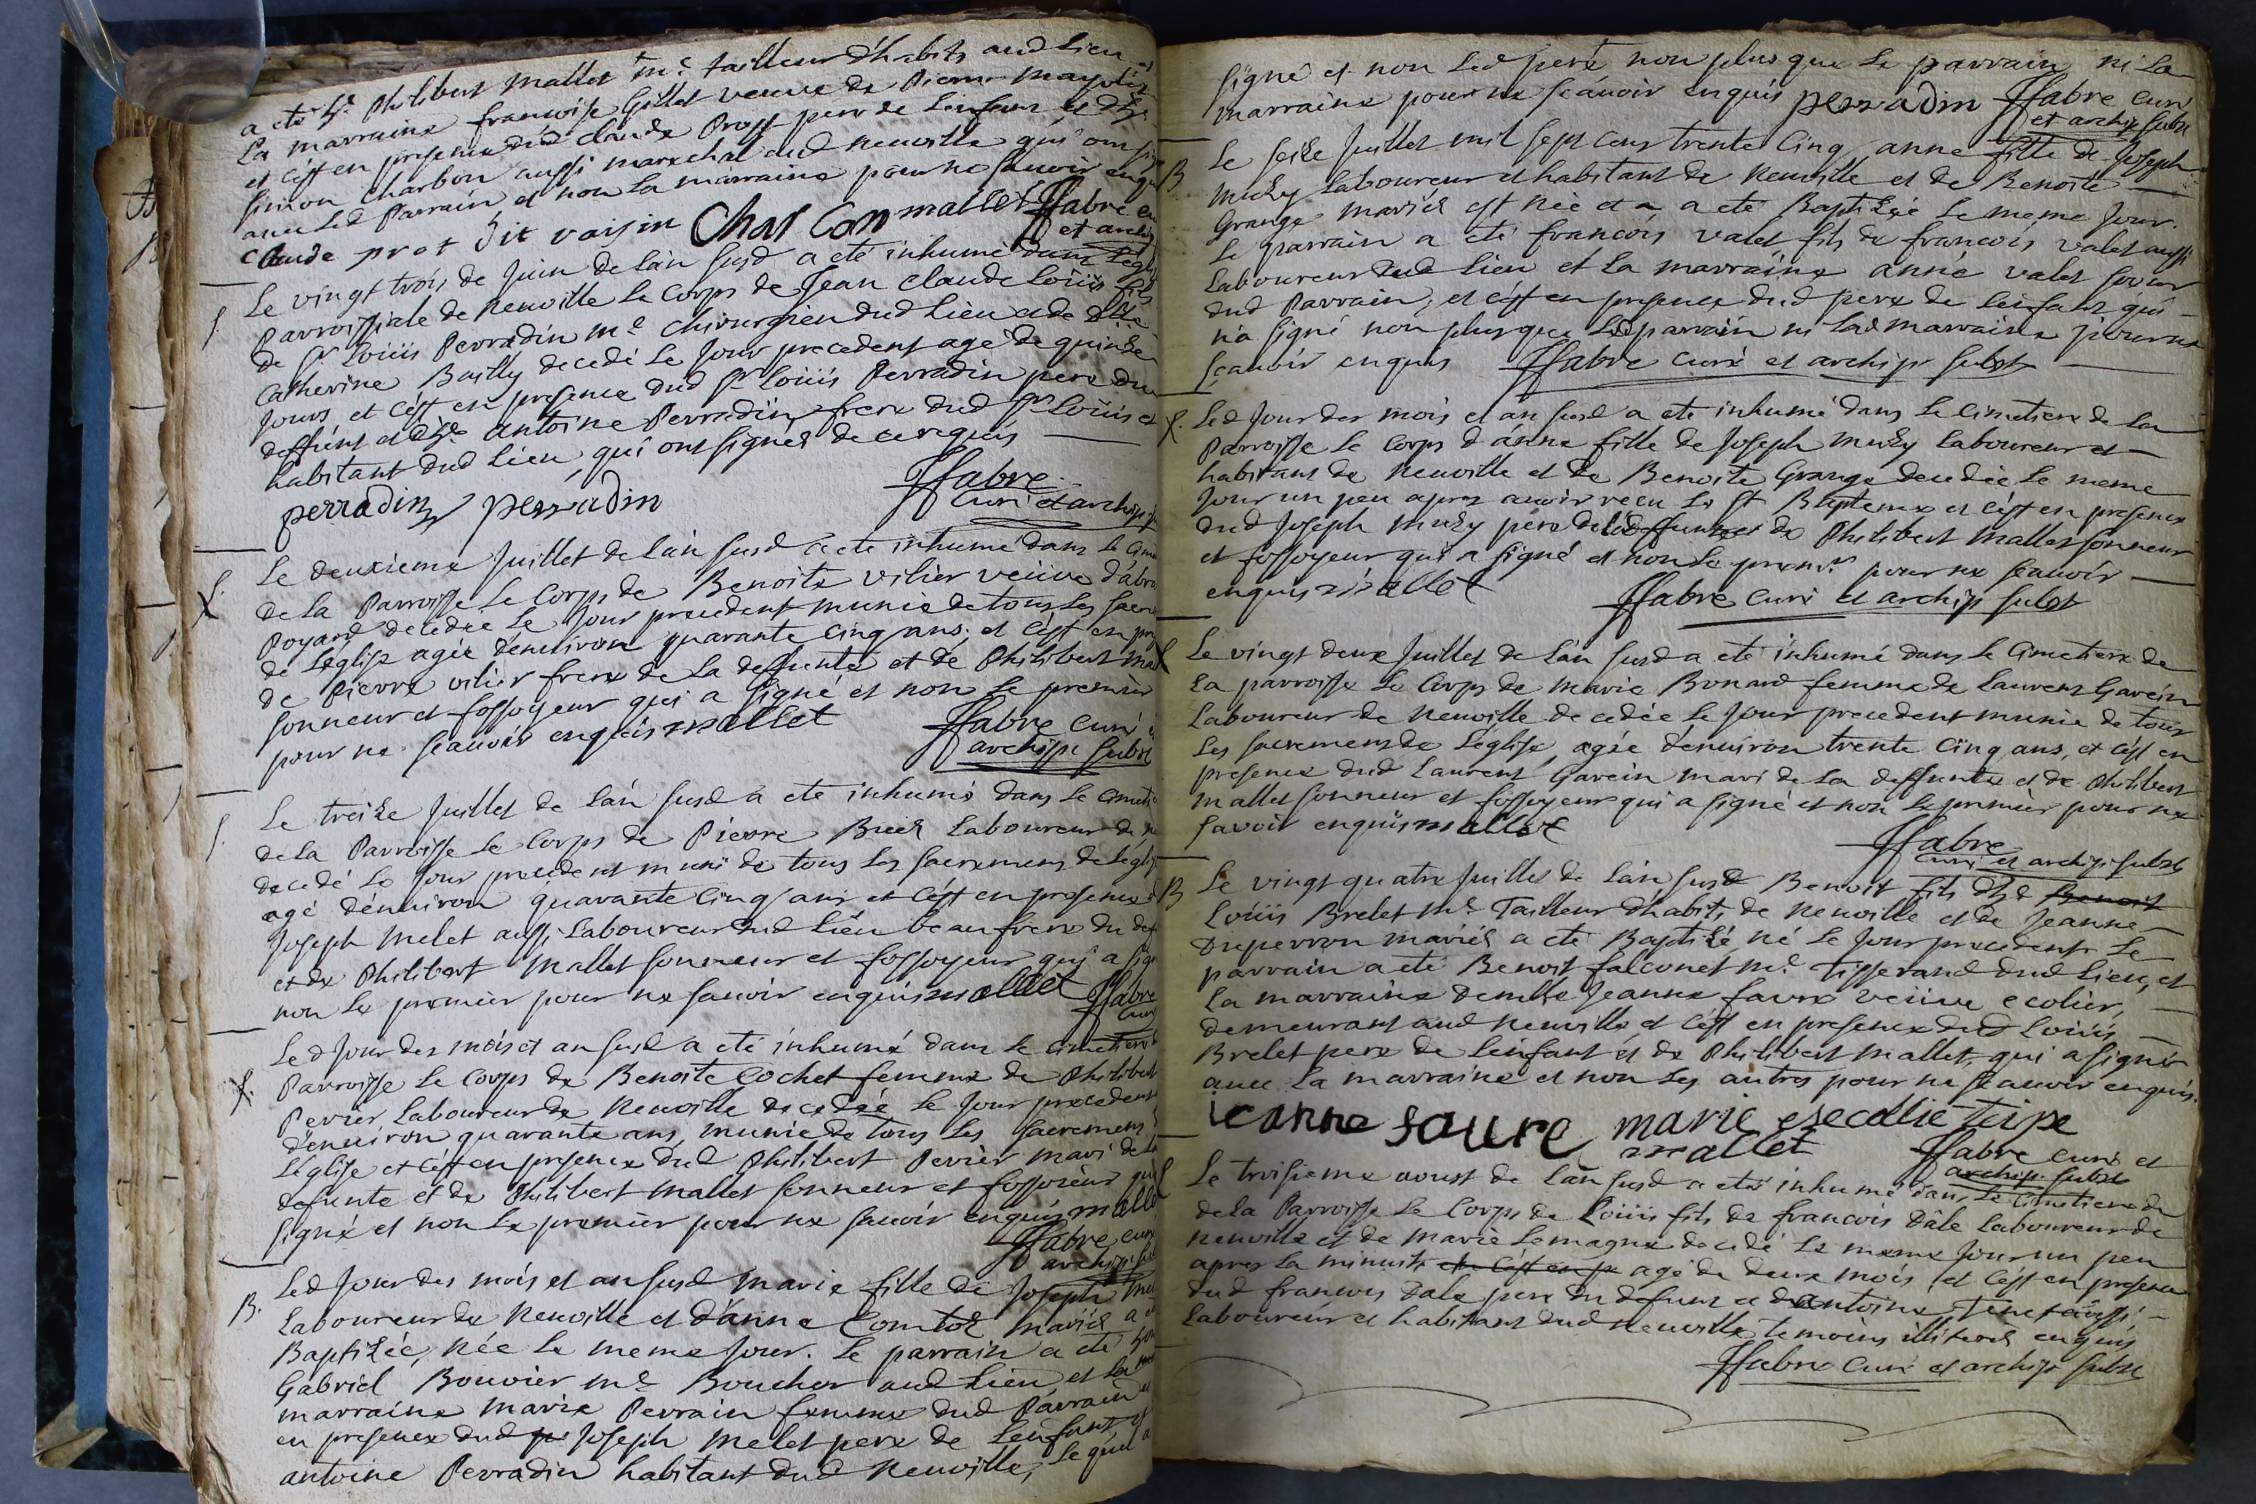 a été Sr. Philibert Mallet me. tailleur d'habits aud lieu
La marraine francoise Gillet veuve de Pierre
et c'est en presence dud claude Prost pere de l'enfant et de
simon charbon aussi marechal aud neuville qui ont
avec led Parrain et non la marraine pour ne scavoir
claude prot dit voisin Charbon mallet ffabre
et archip
S.
Le vingt trois de juin de l'an susd a eté inhumé dans
Parroissiale de Neuville le corps de Jean claude Loüis fils
de Sr Loüis Perradin me. chirurgien dud lieu et de
Catherine Bailly decedé le jour precedent agé de quinze
jours et c'est en presence dud Sr. Loüis Perradin pere du
deffunt et de antoine Perradin frere dud Sr Loüis et
habitant dud lieu qui ont signés de ce requis
perradin perradin ffabre
curé et archip
S.
Le deuxieme juillet de l'an susd a eté inhumé dans le
de la Parroisse le corps de Benoite vilier veüive
Poyard decedée le jour precedent munie de tous les
de L'église agée d'enuiron quarante cinq ans, et c'est en
de Pierre vilier frere de la deffunte et de Philibert
sonneur et fossoyeur qui a signé et non le premier
pour ne scauoir enquis mallet ffabre curé
archip subst
S.
Le treize juillet de l'an susd a eté inhumé dans le
de la Parroisse le corps de Pierre Laboureur de
decedé le jour precedent muni de tous les sacremens de
agé d'enuiron quarante cinq ans et c'est en presence
Joseph melet aussi Laboureur dud lieu beau frere du
et de Philibert Mallet sonneur et fossoyeur qui a
non le premier pour ne sauoir enquis mallet ffabre
S.
Led jour des mois et an susd a eté inhumé dans le cimetiere
Parroisse le corps de Benoite Cochet femme de Philibert
Perier laboureur de Neuville decedée le jour precedent
d'enuiron quarante ans, munie de tous les sacremens
L'église et c'est en presence dud Philibert Perier mari de
defunte et de Philibert Mallet sonneur et fossoieur
signé et non le premier pour ne sauoir enquis
ffabre curé
archip
B.
Led jour des mois et an susd Marie fille de Joseph
Laboureur de Neuville et d'anne mariés a
Baptizée, née le meme jour. Le parrain a eté
Gabriel Bouvier me. Boucher aud lieu et la
marraine Marie Perrain femme dud Parrain
en presence dud Joseph Melet pere de l'enfant
antoine Perradin habitant dud Neuville, lequel
signé et non led pere non plus que le parrain ni la
marraine pour ne scauoir enquis perradin ffabre curé
et archip subst
B
Le seize juillet mil sept cens trente cinq anne fille de joseph
Muzy Laboureur et habitant de Neuville et de Benoite
Grange mariés est née et a eté Baptizée le meme jour.
Le parrain a eté francois valet fils de francois valet aussi
Laboureur dud lieu et la marraine anne valet soeur
dud Parrain, et c'est en presence dud pere de l'enfant qui
n'a signé non plus que led parrain ni lad marraine pour ne
scauoir enquis ffabre curé et archip subst
S.
Led jour des mois et an susd a eté inhumé dans le cimetiere de la
Parroisse le corps d'anne fille de Joseph Muzy laboureur et
habitant de Neuville et de Benoite Grange decedée le meme
jour un peu apres auoir recu le St Bapteme et c'est en presence
dud Joseph Muzy pere de lad deffunte et de Philibert Mallet sonneur
et fossoyeur qui a signé et non le premr. pour ne scauoir
enquis mallet ffabre curé et archip subst
S
Le vingt deux juillet de l'an susd a eté inhumé dans le cimetiere de
la parroisse le corps de Marie Bonard femme de Laurent Garein
Laboureur de Neuville decedée le jour precedent munie de tous
les sacremens de L'église, agée d'enuiron trente cinq ans, et c'est en
presence dud Laurent Garein mari de la deffunte et de Philibert
Mallet sonneur et fossoyeur qui a signé et non le premier pour ne
sauoir enquis mallet ffabre
curé et archip subst
B
Le vingt quatre juillet de l'an susd Benoit fils de Benoit
Loüis Brelet me. Tailleur d'habits de Neuville et de Jeanne
Duperron mariés a eté Baptizé né le jour precedent. Le
parrain a eté Benoit falconet me. Tisserand dud lieu, et
la marraine demlle Jeanne favre veüive ecolier,
demeurant aud Neuville et c'est en presence dud Loüis
Brelet pere de l'enfant et de Philibert Mallet, qui a signé
auec la marraine et non les autres pour ne scauoir enquis.
ieanne faure marie
mallet ffabre curé et
archip subst
S
Le troisieme aoust de l'an susd a eté inhumé dans le cimetiere de
de la Parroisse le corps de Loüis fils de francois Dâle laboureur de
Neuville et de Marie Lemagne decedé le meme jour un peu
apres la minuit et c'est en p agé de deux mois et c'est en presence
dud francois Dale pere du defunt et d'antoine Tenet aussi
Laboureur et habitant dud Neuville temoins illiterés enquis
ffabre curé et archip subst